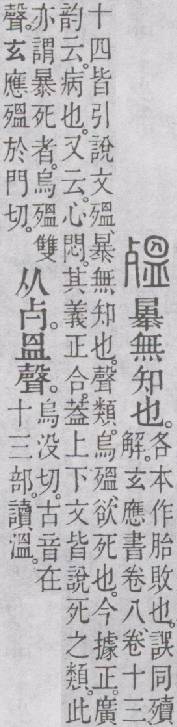 殟 暴無知也。
各本作胎敗也。誤同殰
解。玄應書卷八卷十三
十四皆引說文殟、暴無知也。聲類。烏殟、欲死也。今據正。廣
韵云。病也。又云。心悶。其義正合。葢上下文皆說死之類。此
亦謂暴死者。烏殟雙
聲。玄應殟於門切。
从歺。𥁕聲。
烏没切。古音在
十三部。讀溫。